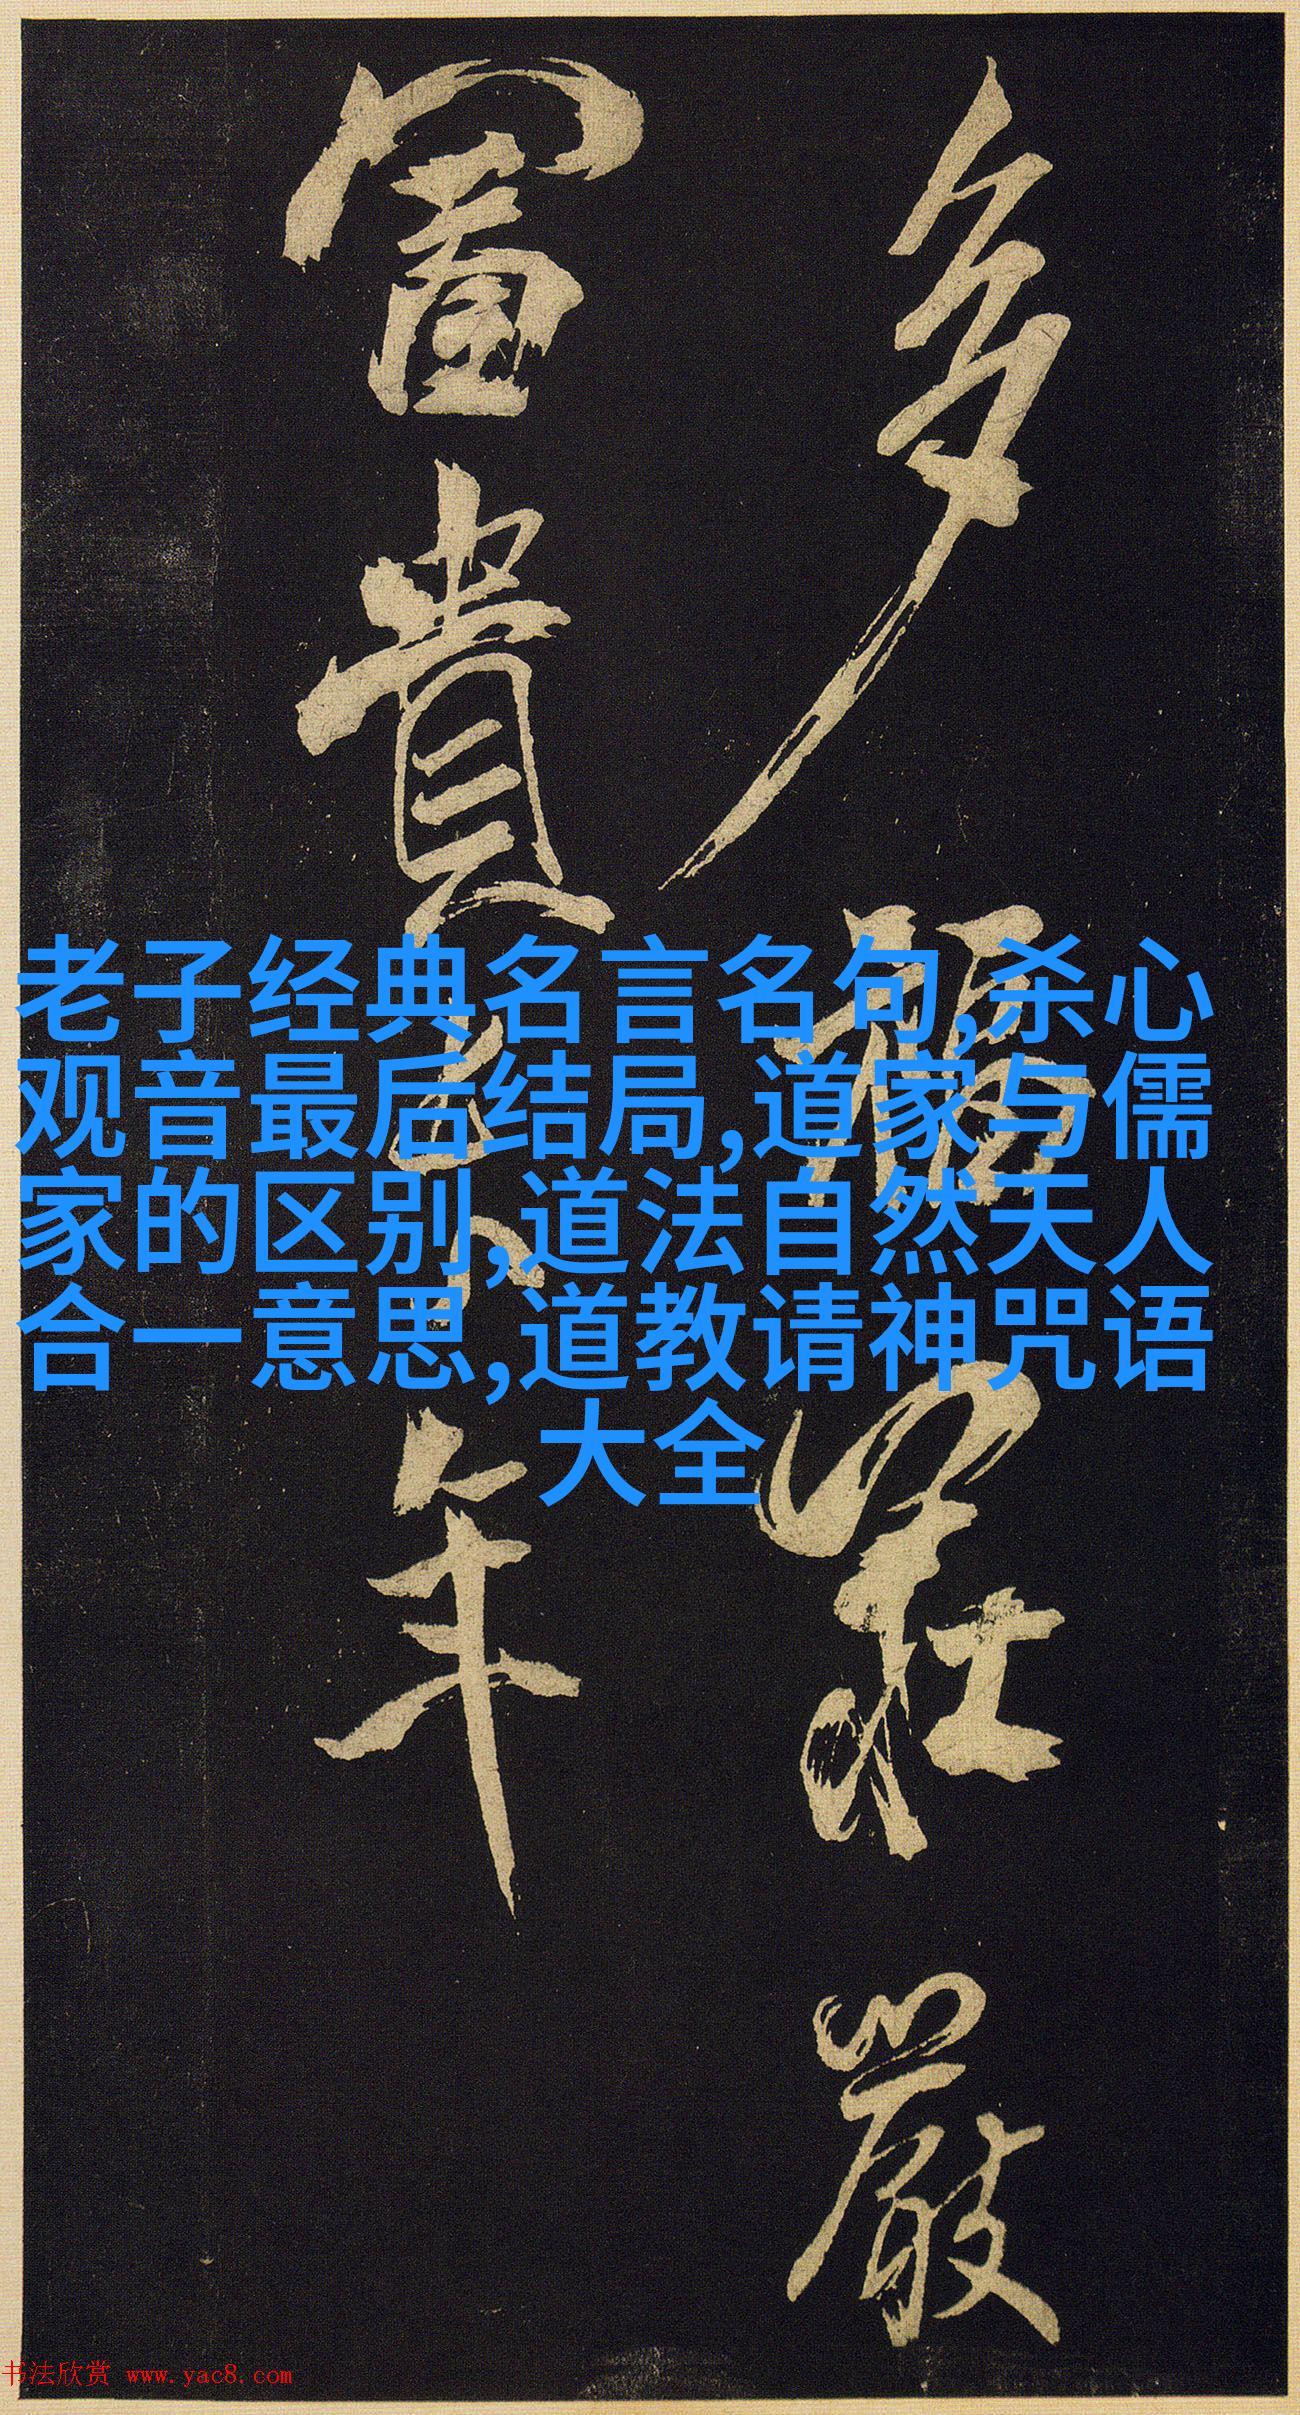 多福莊嚴
富貴
年
老子经典名言名句,杀心
观音最后结局,道家与儒
家的区别,道法自然天人
合一意思,道教请神咒语
大全
书法欣赏 www.yac8.com